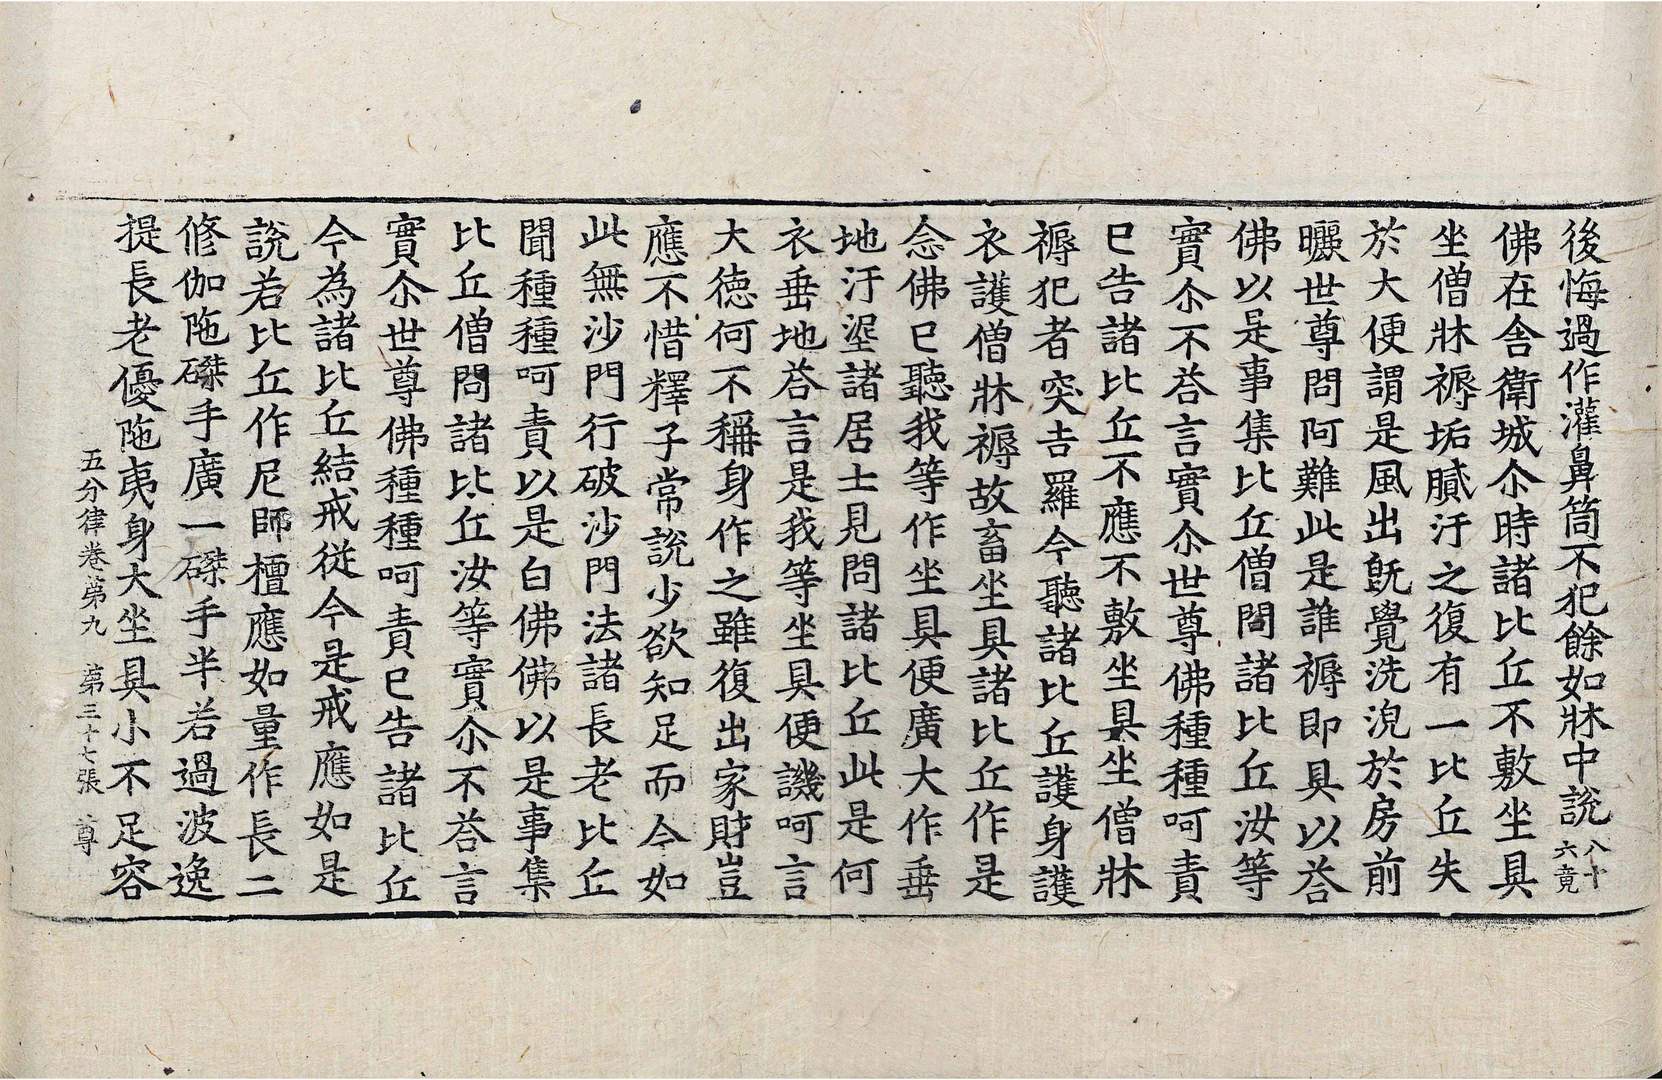 後悔過作灌鼻筒不犯餘如牀中說八十六竟
佛在舍衛城尒時諸比丘不敷坐具
坐僧牀褥垢膩汙之復有一比丘失
於大便謂是風出旣覺洗浣於房前
曬世尊問阿難此是誰褥即具以荅
佛以是事集比丘僧問諸比丘汝等
實尒不荅言實尒世尊佛種種呵責
已告諸比丘不應不敷坐具坐僧牀
褥犯者突吉羅今聽諸比丘護身護
衣護僧牀褥故畜坐具諸比丘作是
念佛已聽我等作坐具便廣大作垂
地汙埿諸居士見問諸比丘此是何
衣垂地荅言是我等坐具便譏呵言
大德何不稱身作之雖復出家財豈
應不惜釋子常說少欲知足而今如
此無沙門行破沙門法諸長老比丘
聞種種呵責以是白佛佛以是事集
比丘僧問諸比丘汝等實尒不荅言
實尒世尊佛種種呵責已告諸比丘
今為諸比丘結戒從今是戒應如是
說若比丘作尼師檀應如量作長二
修伽陁磔手廣一磔手半若過波逸
提長老優陁夷身大坐具小不足容
五分律卷苐九　苐三十七張　尊